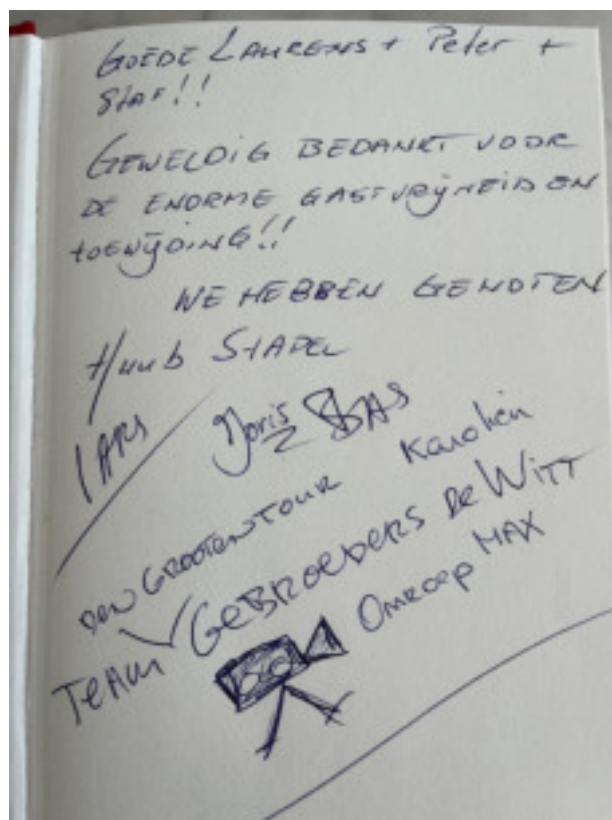 GOEDE LAURENS + Peter +
STAF!!
GEWELDIG BEDANKT VOOR
DE ENORME GASTVRIJHEID EN
TOEWIJDING!!
WE HEBBEN GENOTEN
Huub STAPEL
LARS
Joris BAS
DEN GROOTEN TOUR Karolien
TEAM GEBROEDERS DE WITT
Omroep MAX